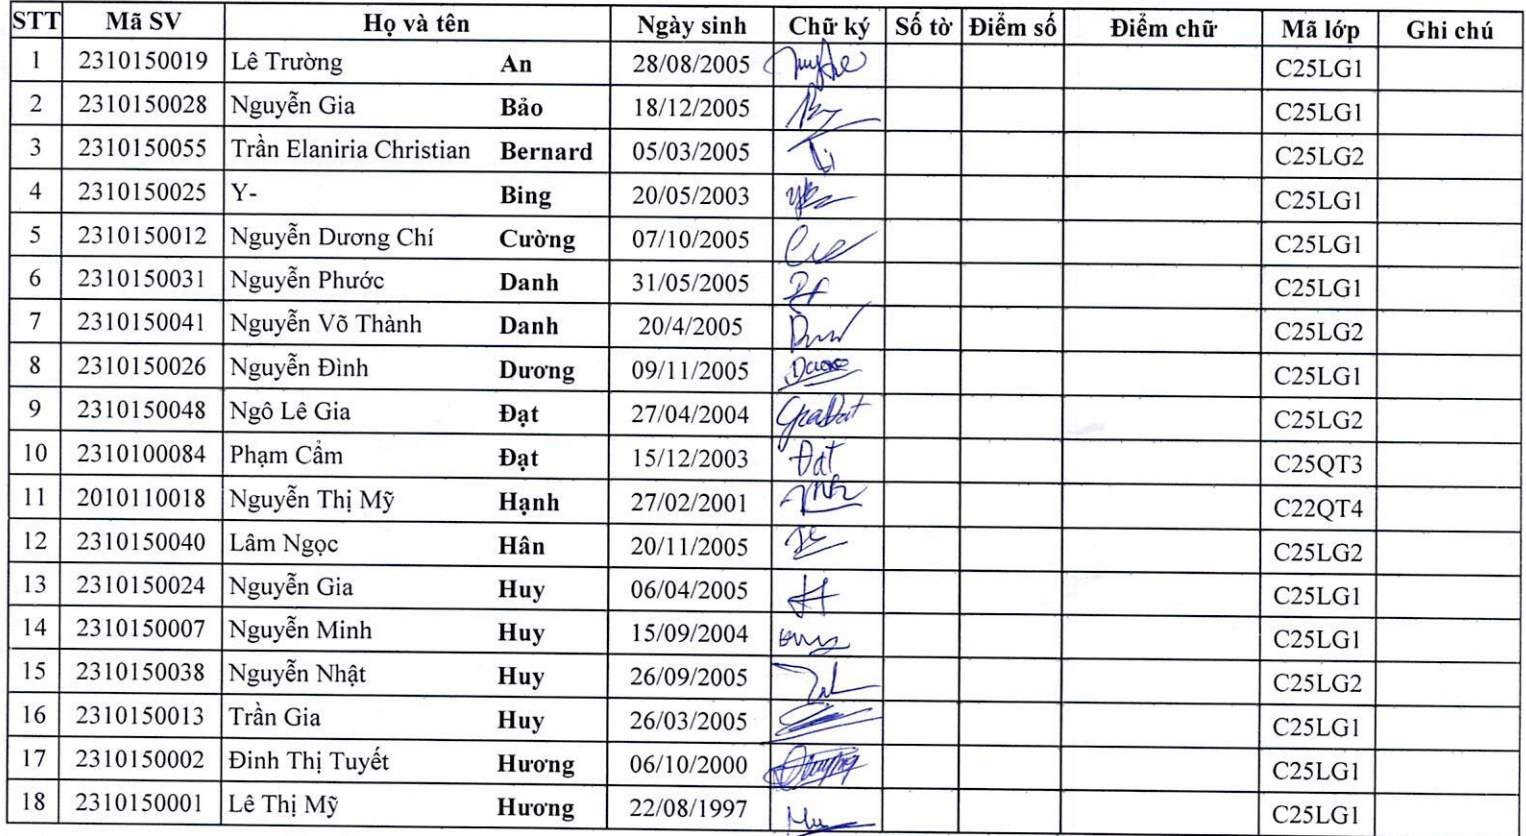 STT Mã SV Họ và tên Ngày sinh Chữ ký Số tờ Điểm số Điểm chữ Mã lớp Ghi chú
1 2310150019 Lê Trường An 28/08/2005 C25LG1
2 2310150028 Nguyễn Gia Bảo 18/12/2005 C25LG1
3 2310150055 Trần Elaniria Christian Bernard 05/03/2005 C25LG2
4 2310150025 Y- Bing 20/05/2003 C25LG1
5 2310150012 Nguyễn Dương Chí Cường 07/10/2005 C25LG1
6 2310150031 Nguyễn Phước Danh 31/05/2005 C25LG1
7 2310150041 Nguyễn Võ Thành Danh 20/4/2005 C25LG2
8 2310150026 Nguyễn Đình Dương 09/11/2005 C25LG1
9 2310150048 Ngô Lê Gia Đạt 27/04/2004 GiaĐạt C25LG2
10 2310100084 Phạm Cẩm Đạt 15/12/2003 Đạt C25QT3
11 2010110018 Nguyễn Thị Mỹ Hạnh 27/02/2001 C22QT4
12 2310150040 Lâm Ngọc Hân 20/11/2005 C25LG2
13 2310150024 Nguyễn Gia Huy 06/04/2005 C25LG1
14 2310150007 Nguyễn Minh Huy 15/09/2004 C25LG1
15 2310150038 Nguyễn Nhật Huy 26/09/2005 C25LG2
16 2310150013 Trần Gia Huy 26/03/2005 C25LG1
17 2310150002 Đinh Thị Tuyết Hương 06/10/2000 C25LG1
18 2310150001 Lê Thị Mỹ Hương 22/08/1997 C25LG1